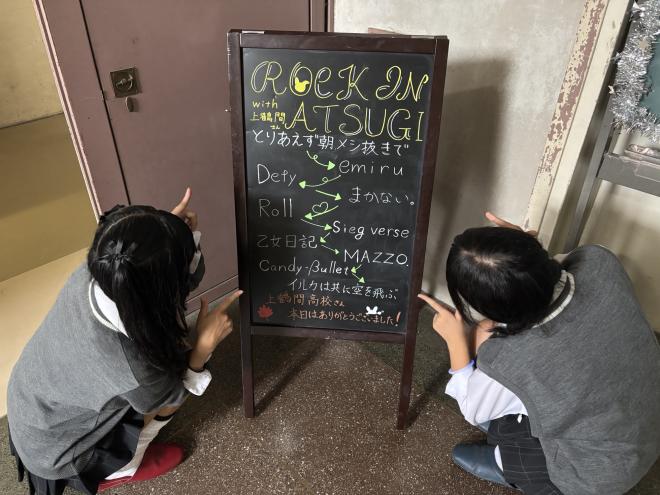 ROCK IN
with
上鶴間
さん
ATSUGI
とりあえず朝メシ抜きで
emiru
Defy
まかない。
Roll
Sieg verse
乙女日記
MAZZO.
Candy-Bullet
イルカは共に空を飛ぶ
上鶴間高校さん
本日はありがとうございました!